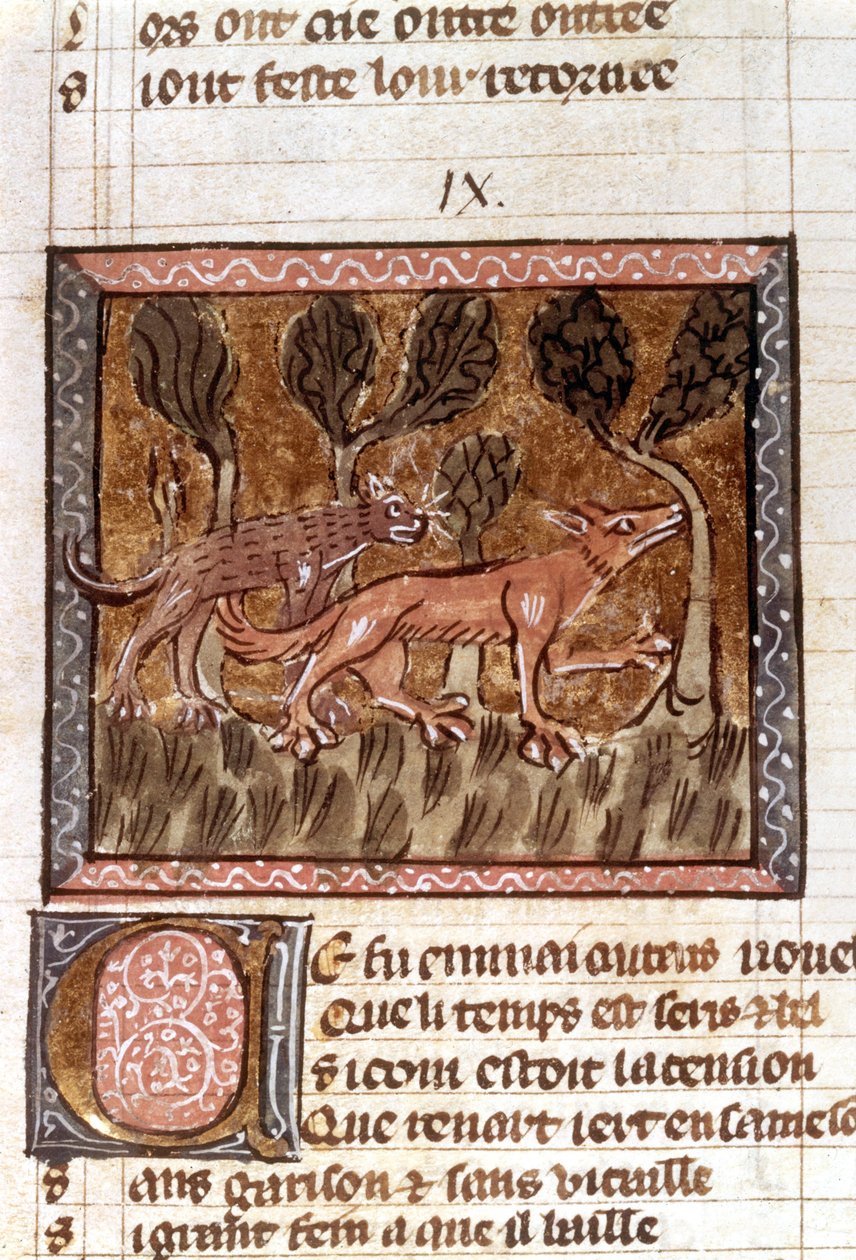 L ors ont crie outre outree
S iont feste lour retornee
IX.
Ce fu en mai au tens nouel
Que li temps est seris & bel
Si com estoit lacension
Que renart iert en sa meso
S ans garison & sans vitaille
S i grant fein a que il baille